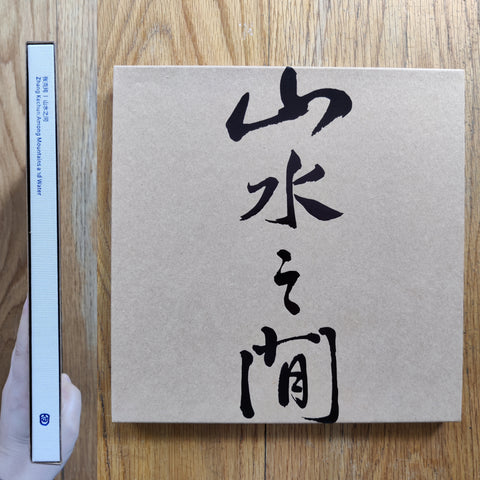 张克纯｜山水之间
Zhang Kechun: Among Mountains and Water
山
水
之
間